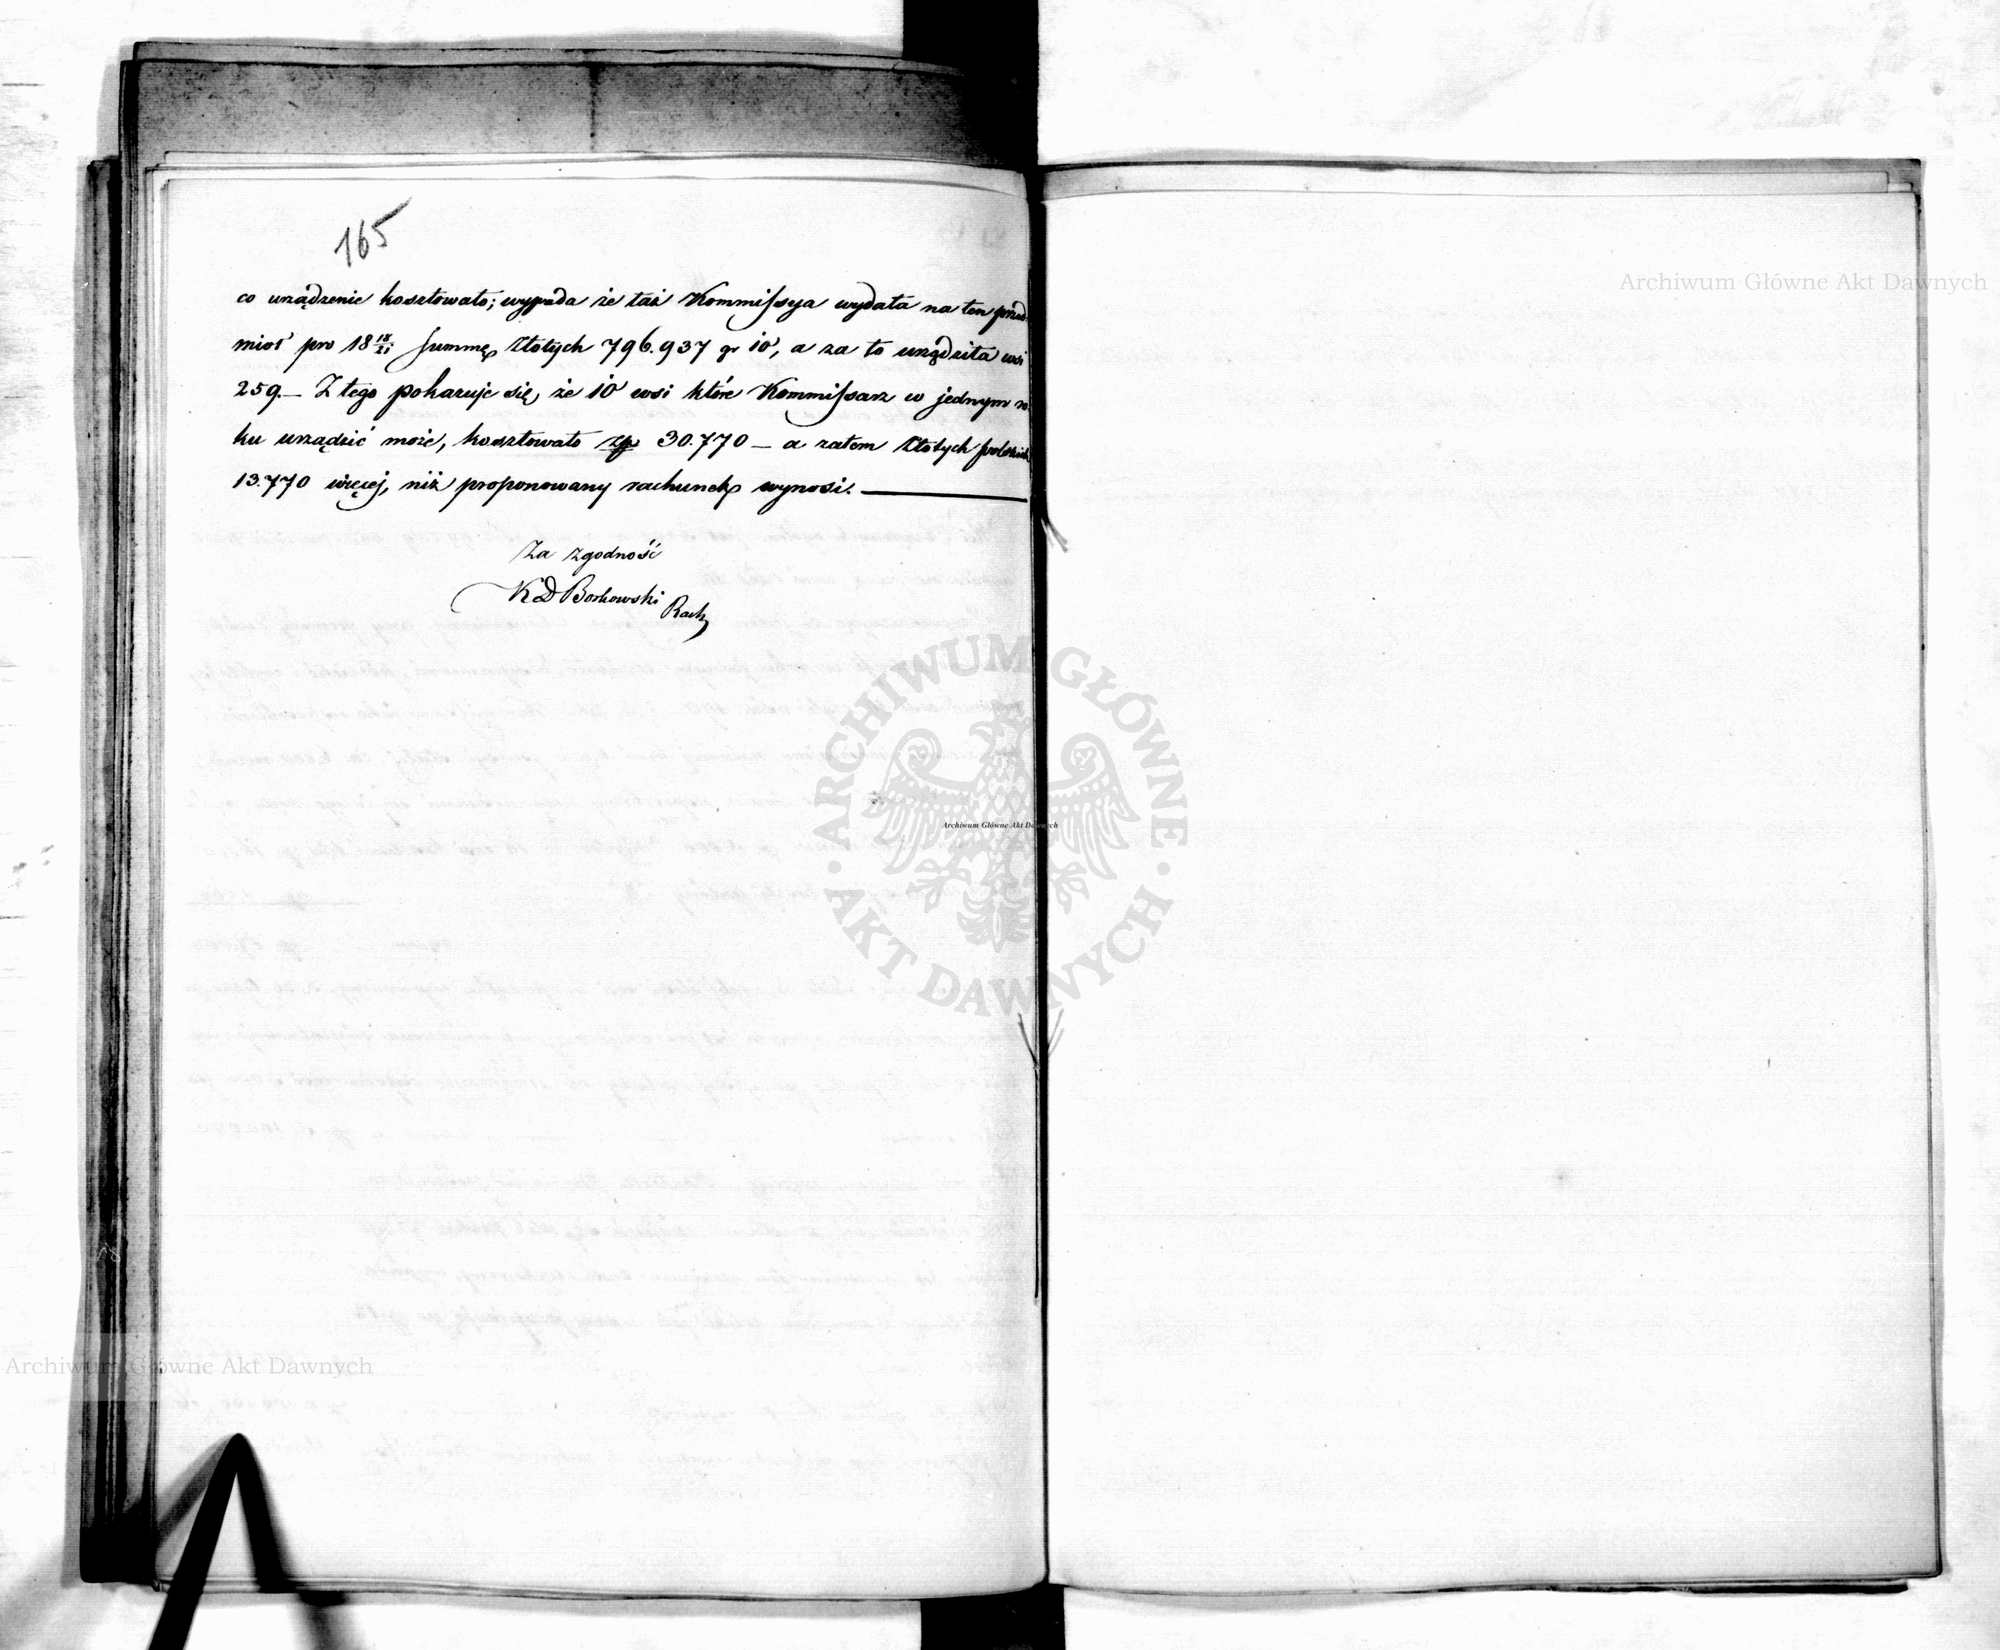 165
co urządzenie kosztowało; wypada że taż Kommissya wydała na ten przed-
miot pro 18 18/21 summę złotych 796.937 gr 10, a za to urządziła wsi
259. — Z tego pokazuje się, że 10 wsi które Kommissarz w jednym ro-
ku urządzić może, kosztowało zp 30.770 — a zatem złotych polskich
13.770 więcej, niż proponowany rachunek wynosi. —
Za zgodność
KD Borkowski
Rach
Archiwum Główne Akt Dawnych
ARCHIWUM GŁÓWNE
Archiwum Główne Akt Dawnych
· AKT DAWNYCH ·
Archiwum Główne Akt Dawnych